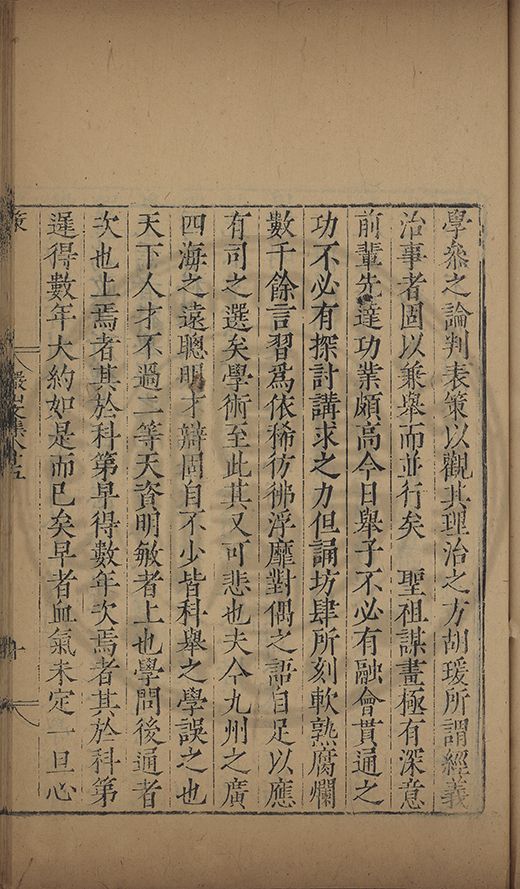 學叅之論判表策以觀其理治之方胡瑗所謂經義
治事者固以兼舉而並行矣　聖祖謀畫極有深意
前輩先達功業頗高今日舉子不必有融會貫通之
功不必有探討講求之力但誦坊肆所刻軟熟腐爛
數千餘言習爲依稀彷彿浮靡對偶之語自足以應
有司之選矣學術至此其又可悲也夫今九州之廣
四海之遠聰明才辯固自不少皆科舉之學誤之也
天下人才不過二等天資明敏者上也學問後通者
次也上焉者其於科第早得數年次焉者其於科第
遲得數年大約如是而已矣早者血氣未定一旦心
策
文集
十五
十